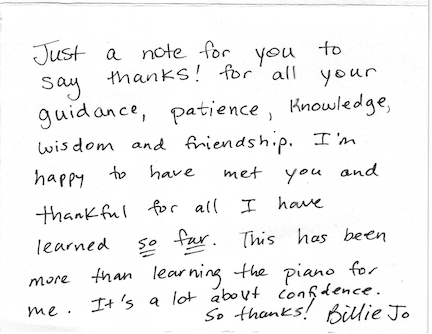 Just a note for you to
say thanks! for all your
guidance, patience, knowledge,
wisdom and friendship. I'm
happy to have met you and
thankful for all I have
learned so far. This has been
more than learning the piano for
me. It's a lot about confidence.
So thanks! Billie Jo